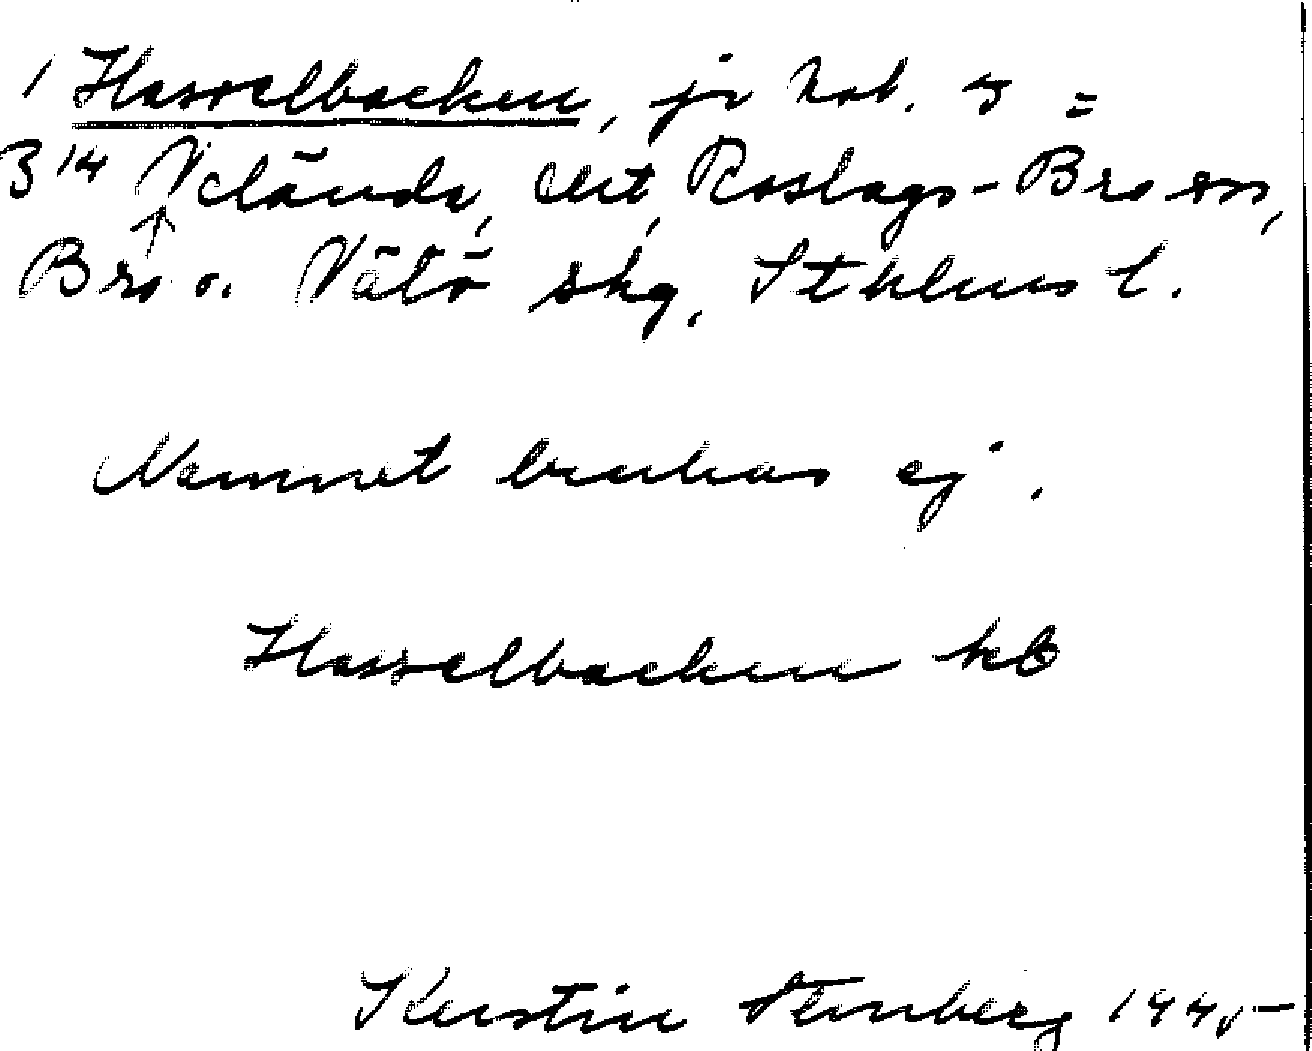 1 Hasselbacken, jr Nob. 5 =
B 14 Velända, Ort, Roslags-Bro sn,
Bro o. Vätö skg, Sthlms l.
Namnet brukas ej.
Hasselbacken kb
Kerstin Stenberg 1945